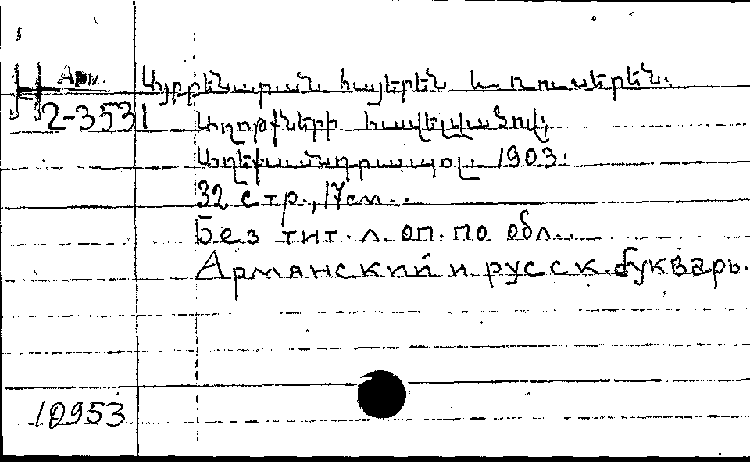 Арм.
Այբբենարան հայերէն և ռուսերէն.
2-3531
Աղօթքների հավելվածով;
Աղեքսանդրապօլ 1903:
32 стр., 17см..
Без тит. л. оп. по обл..
Армянский и русск. букварь.
10953